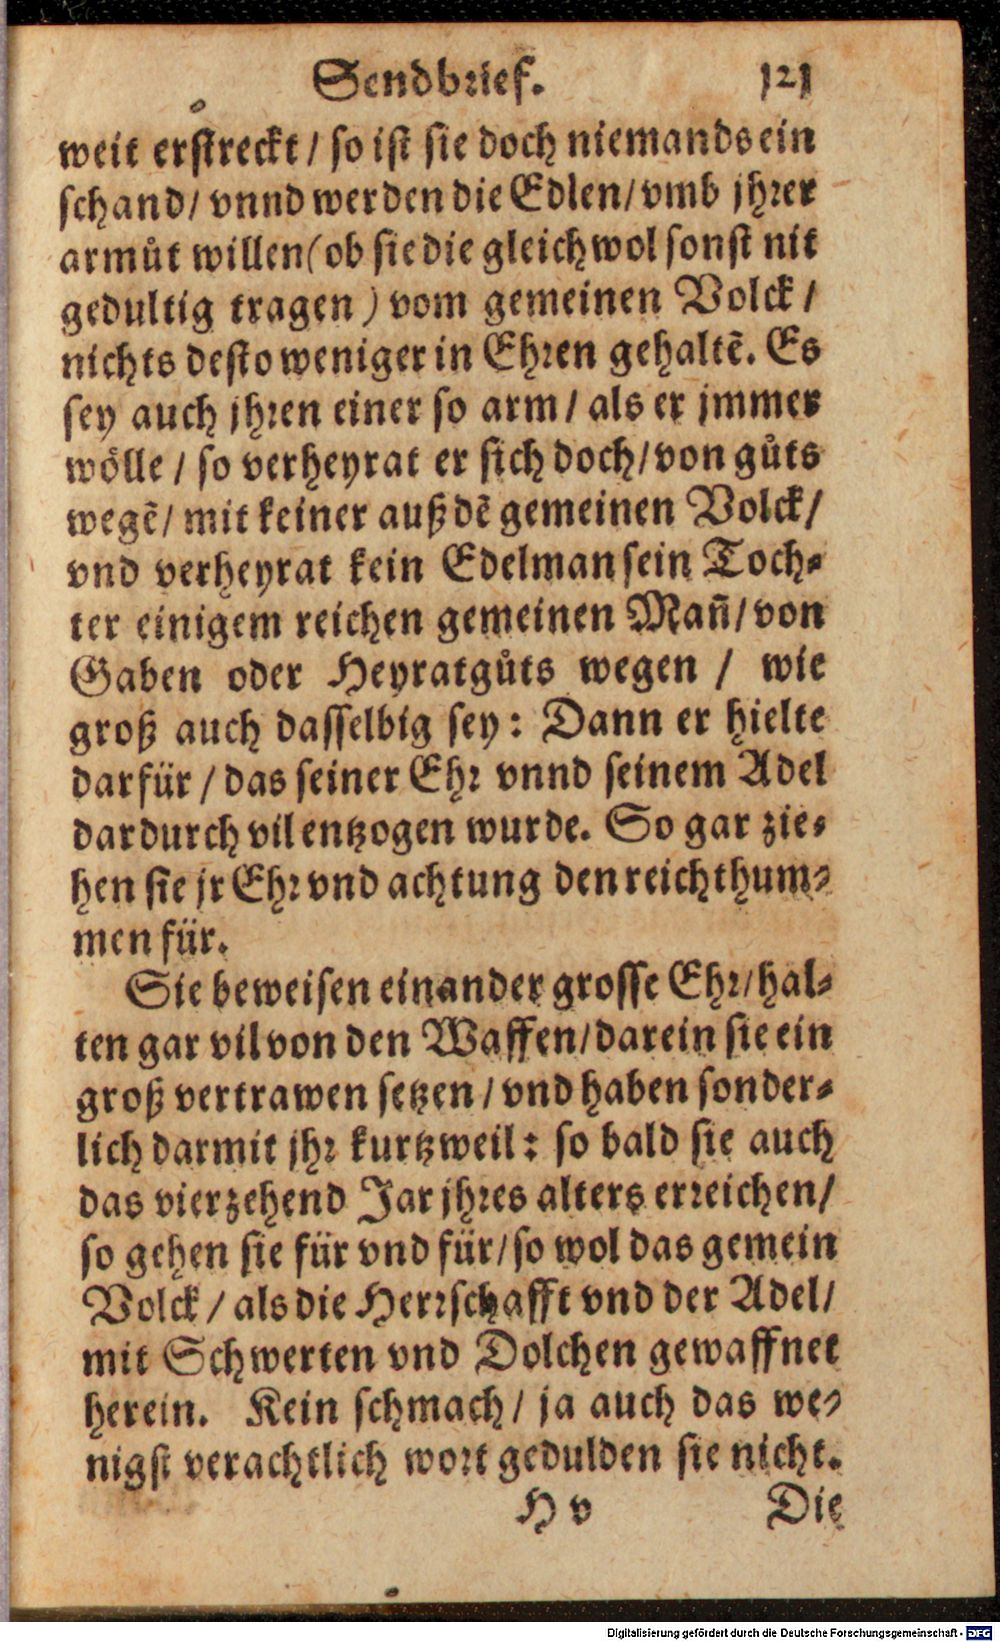 Sendbrief. 121
weit erstreckt / so ist sie doch niemands ein
schand / vnnd werden die Edlen / vmb jhrer
armůt willen (ob sie die gleichwol sonst nit
gedultig tragen) vom gemeinen Volck /
nichts desto weniger in Ehren gehaltẽ. Es
sey auch jhren einer so arm / als er jmmer
wölle / so verheyrat er sich doch / von gůts
wegẽ / mit keiner auß dẽ gemeinen Volck /
vnd verheyrat kein Edelman sein Toch⸗
ter einigem reichen gemeinen Mañ / von
Gaben oder Heyratgůts wegen / wie
groß auch dasselbig sey: Dann er hielte
darfür / das seiner Ehr vnnd seinem Adel
dardurch vil entzogen wurde. So gar zie⸗
hen sie jr Ehr vnd achtung den reichthum⸗
men für.
Sie beweisen einander grosse Ehr / hal⸗
ten gar vil von den Waffen / darein sie ein
groß vertrawen setzen / vnd haben sonder⸗
lich darmit jhr kurtzweil: so bald sie auch
das vierzehend Jar jhres alters erreichen /
so gehen sie für vnd für / so wol das gemein
Volck / als die Herrschafft vnd der Adel /
mit Schwerten vnd Dolchen gewaffnet
herein. Kein schmach / ja auch das we⸗
nigst verachtlich wort gedulden sie nicht.
H v Die
Digitalisierung gefördert durch die Deutsche Forschungsgemeinschaft - DFG